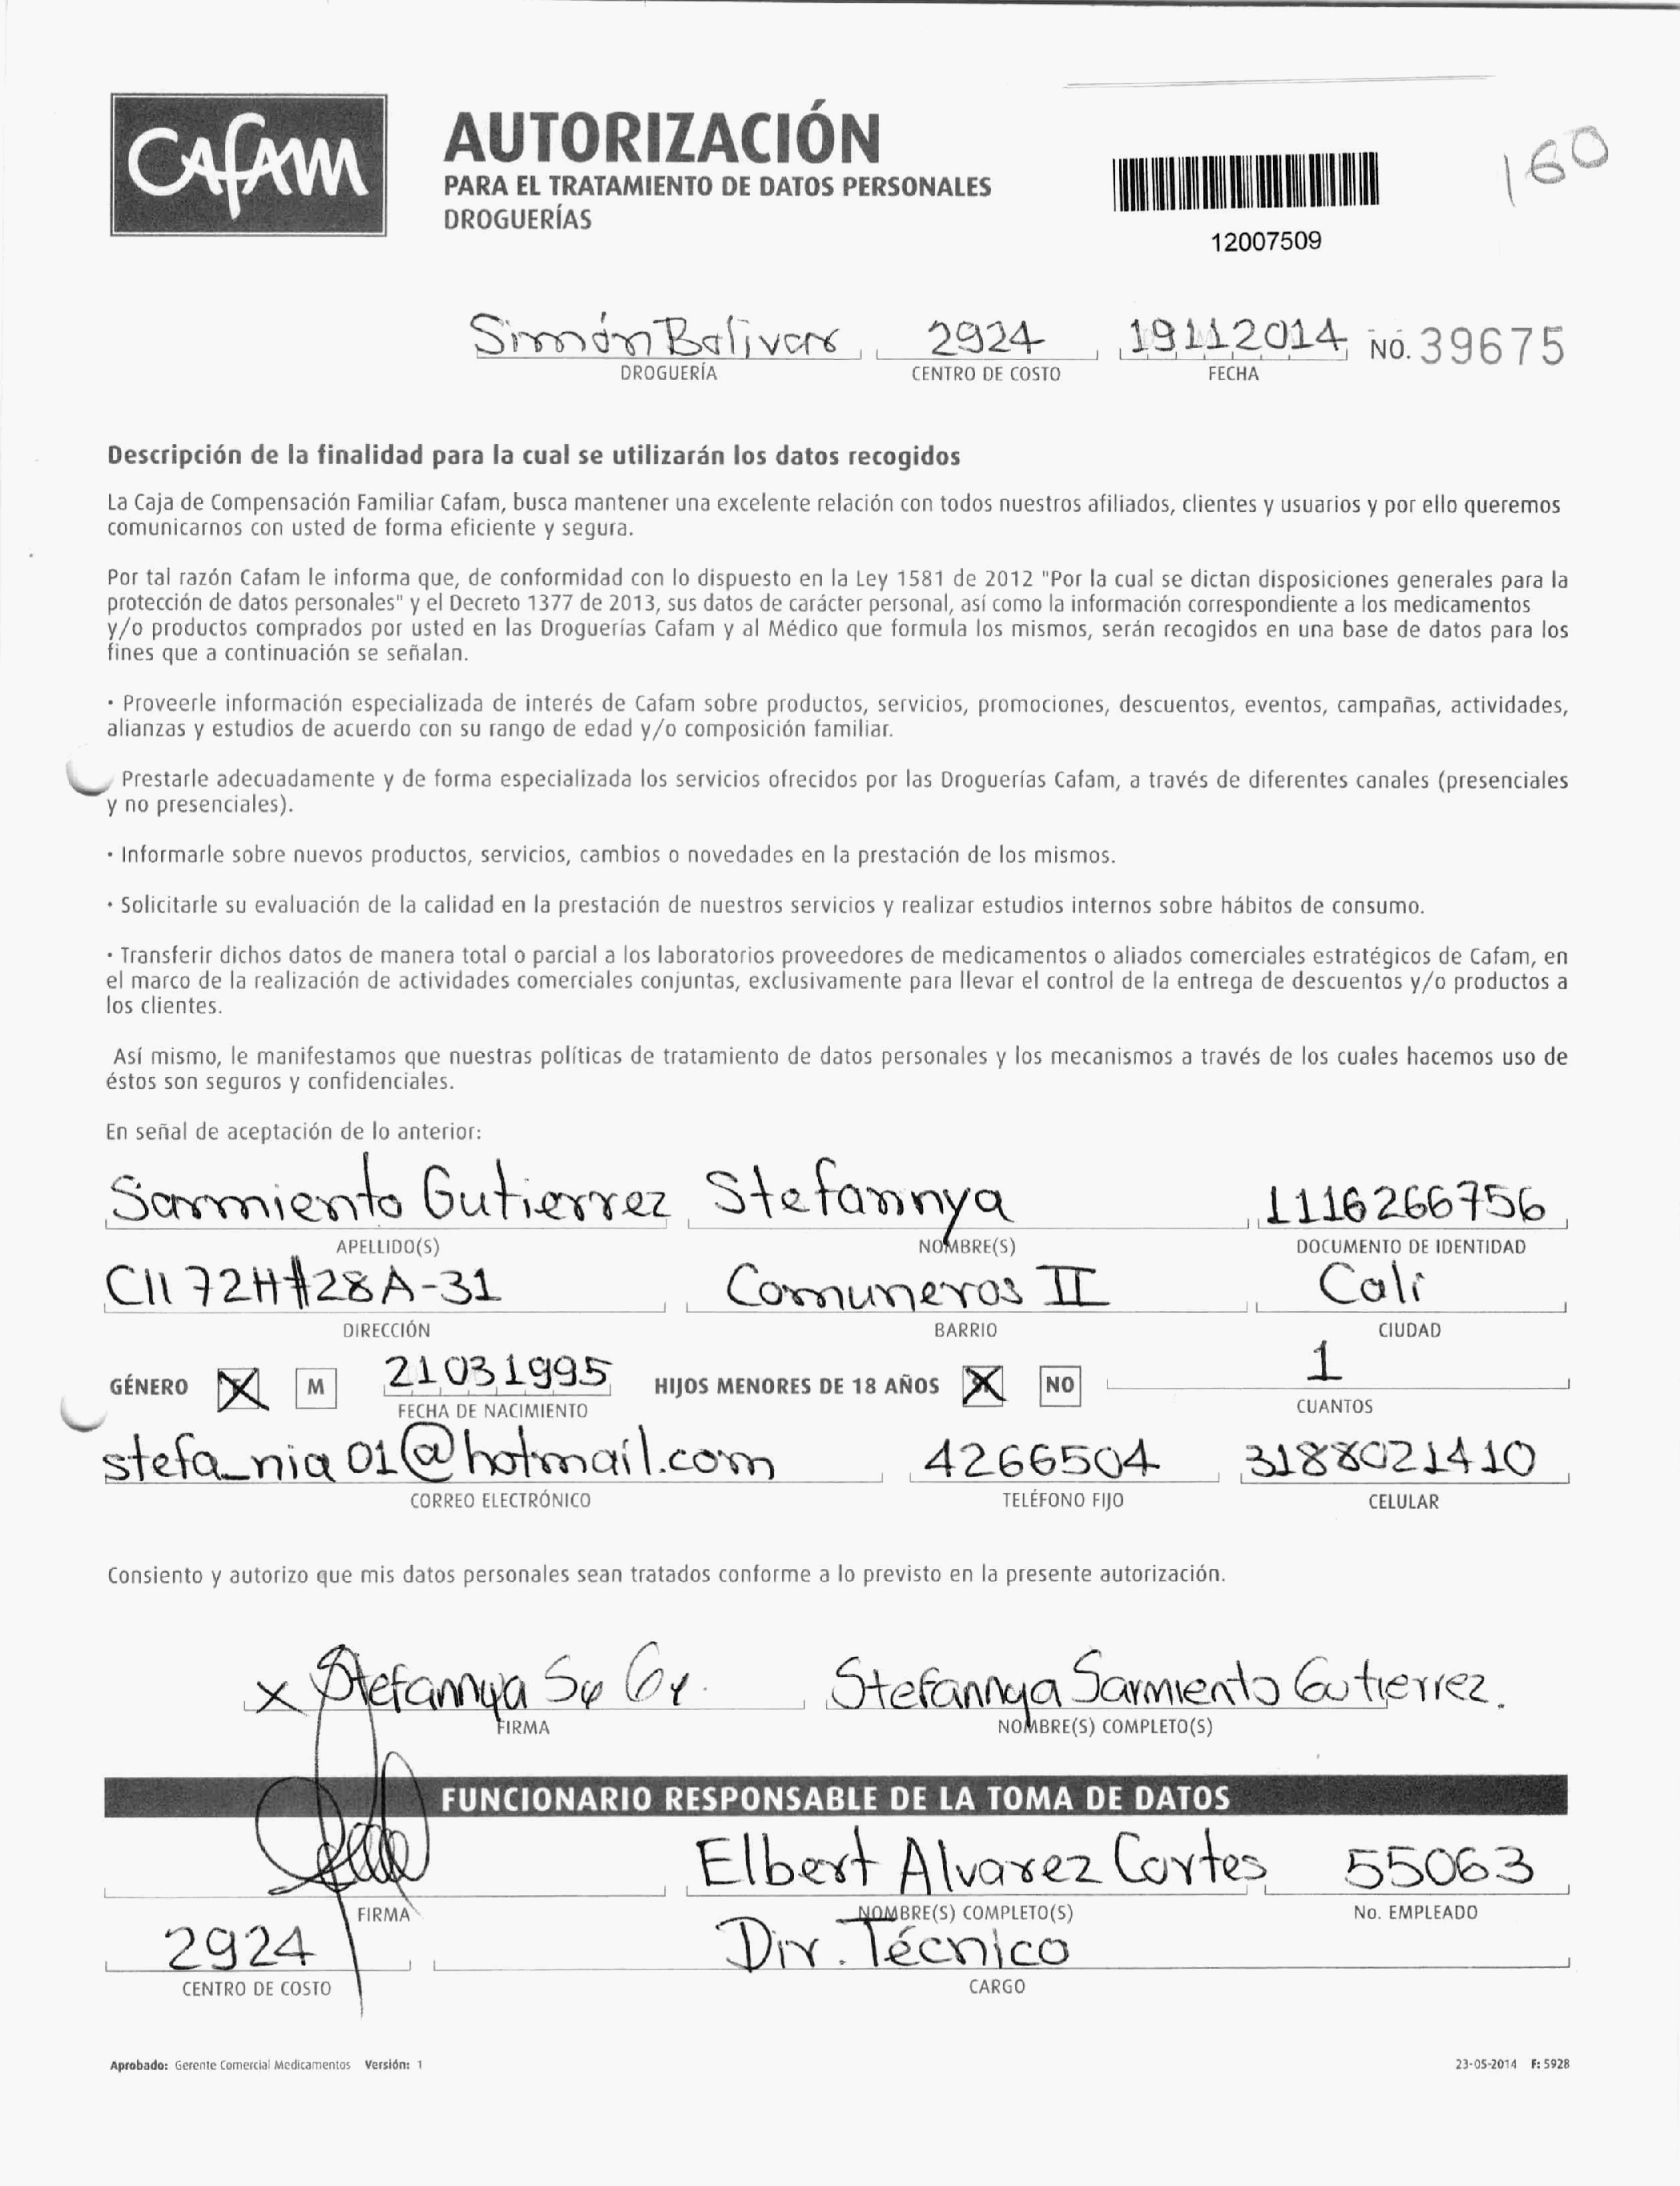 CAFAM
AUTORIZACIÓN
PARA EL TRATAMIENTO DE DATOS PERSONALES
DROGUERÍAS
12007509
160
Simón Bolivar 2924 19112014 NO. 39675
DROGUERÍA CENTRO DE COSTO FECHA
Descripción de la finalidad para la cual se utilizarán los datos recogidos
La Caja de Compensación Familiar Cafam, busca mantener una excelente relación con todos nuestros afiliados, clientes y usuarios y por ello queremos
comunicarnos con usted de forma eficiente y segura.
Por tal razón Cafam le informa que, de conformidad con lo dispuesto en la Ley 1581 de 2012 "Por la cual se dictan disposiciones generales para la
protección de datos personales" y el Decreto 1377 de 2013, sus datos de carácter personal, así como la información correspondiente a los medicamentos
y/o productos comprados por usted en las Droguerías Cafam y al Médico que formula los mismos, serán recogidos en una base de datos para los
fines que a continuación se señalan.
· Proveerle información especializada de interés de Cafam sobre productos, servicios, promociones, descuentos, eventos, campañas, actividades,
alianzas y estudios de acuerdo con su rango de edad y/o composición familiar.
Prestarle adecuadamente y de forma especializada los servicios ofrecidos por las Droguerías Cafam, a través de diferentes canales (presenciales
y no presenciales).
· Informarle sobre nuevos productos, servicios, cambios o novedades en la prestación de los mismos.
· Solicitarle su evaluación de la calidad en la prestación de nuestros servicios y realizar estudios internos sobre hábitos de consumo.
· Transferir dichos datos de manera total o parcial a los laboratorios proveedores de medicamentos o aliados comerciales estratégicos de Cafam, en
el marco de la realización de actividades comerciales conjuntas, exclusivamente para llevar el control de la entrega de descuentos y/o productos a
los clientes.
Así mismo, le manifestamos que nuestras políticas de tratamiento de datos personales y los mecanismos a través de los cuales hacemos uso de
éstos son seguros y confidenciales.
En señal de aceptación de lo anterior:
Sarmiento Gutierrez Stefannya 1116266756
APELLIDO(S) NOMBRE(S) DOCUMENTO DE IDENTIDAD
Cll 72H#28A-31 Comuneros II Cali
DIRECCIÓN BARRIO CIUDAD
GÉNERO X M 21031995 HIJOS MENORES DE 18 AÑOS X NO 1
FECHA DE NACIMIENTO CUANTOS
stefa_nia01@hotmail.com 4266504 3188021410
CORREO ELECTRÓNICO TELÉFONO FIJO CELULAR
Consiento y autorizo que mis datos personales sean tratados conforme a lo previsto en la presente autorización.
x Stefannya Stefannya Sarmiento Gutierrez.
FIRMA NOMBRE(S) COMPLETO(S)
FUNCIONARIO RESPONSABLE DE LA TOMA DE DATOS
Elbert Alvarez Cortes 55063
FIRMA NOMBRE(S) COMPLETO(S) No. EMPLEADO
2924 Dir. Técnico
CENTRO DE COSTO CARGO
Aprobado: Gerente Comercial Medicamentos Versión: 1 23-05-2014 F: 5928